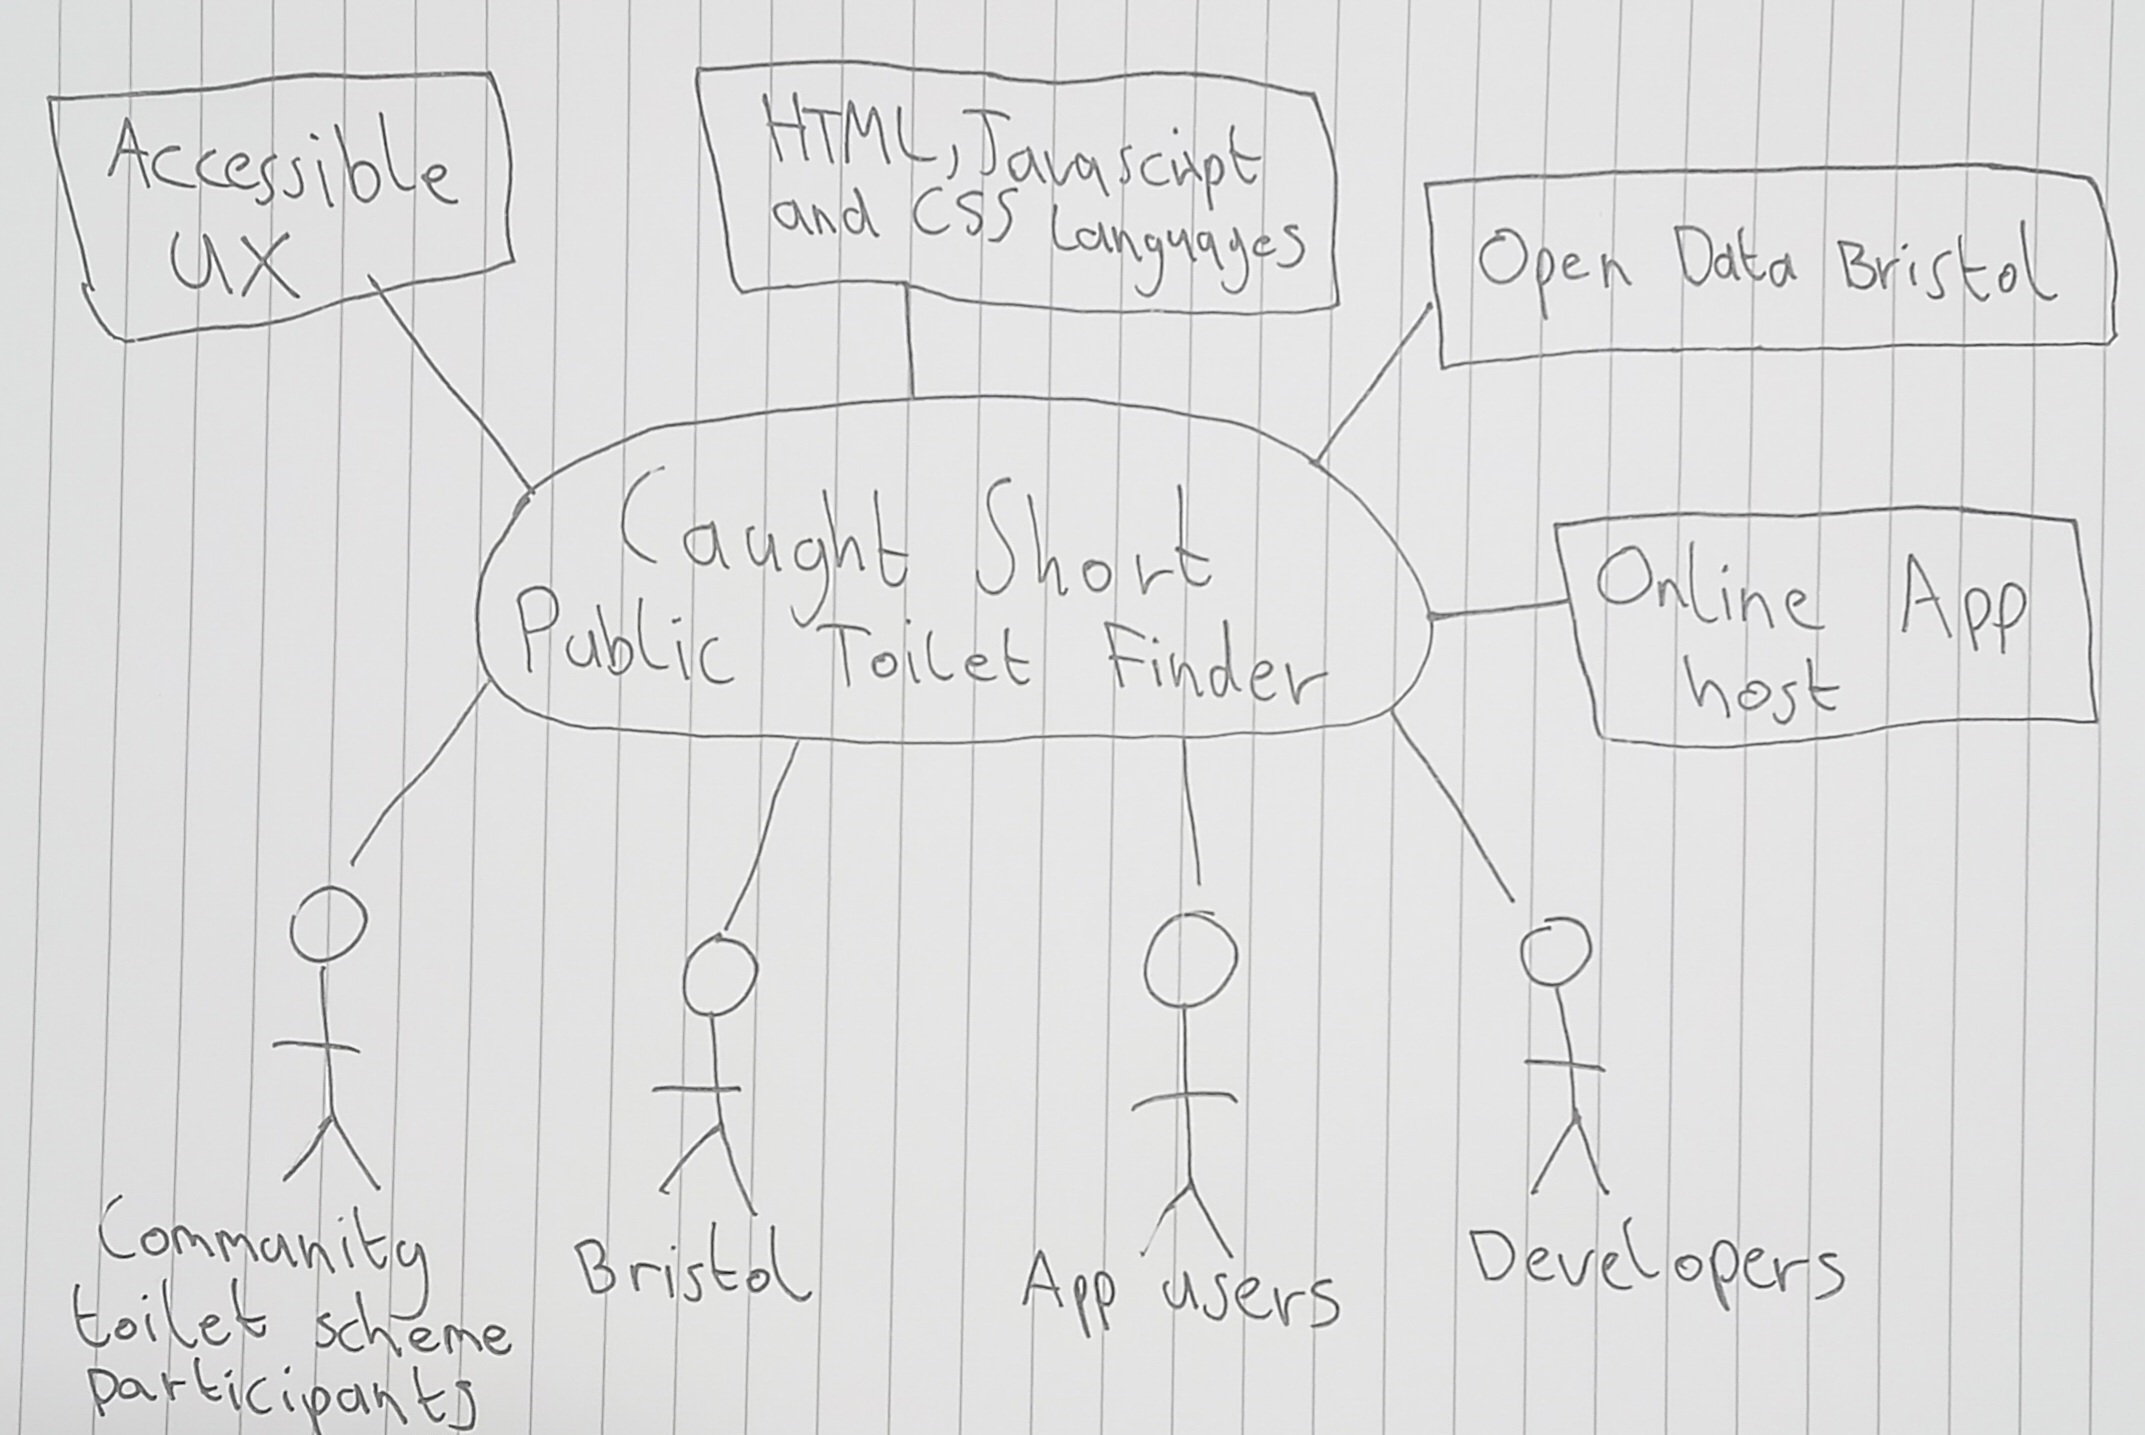 Accessible
UX
HTML, Javascript
and CSS Languages
Open Data Bristol
Caught Short
Public Toilet Finder
Online App
host
Community
toilet scheme
participants
Bristol
App users
Developers